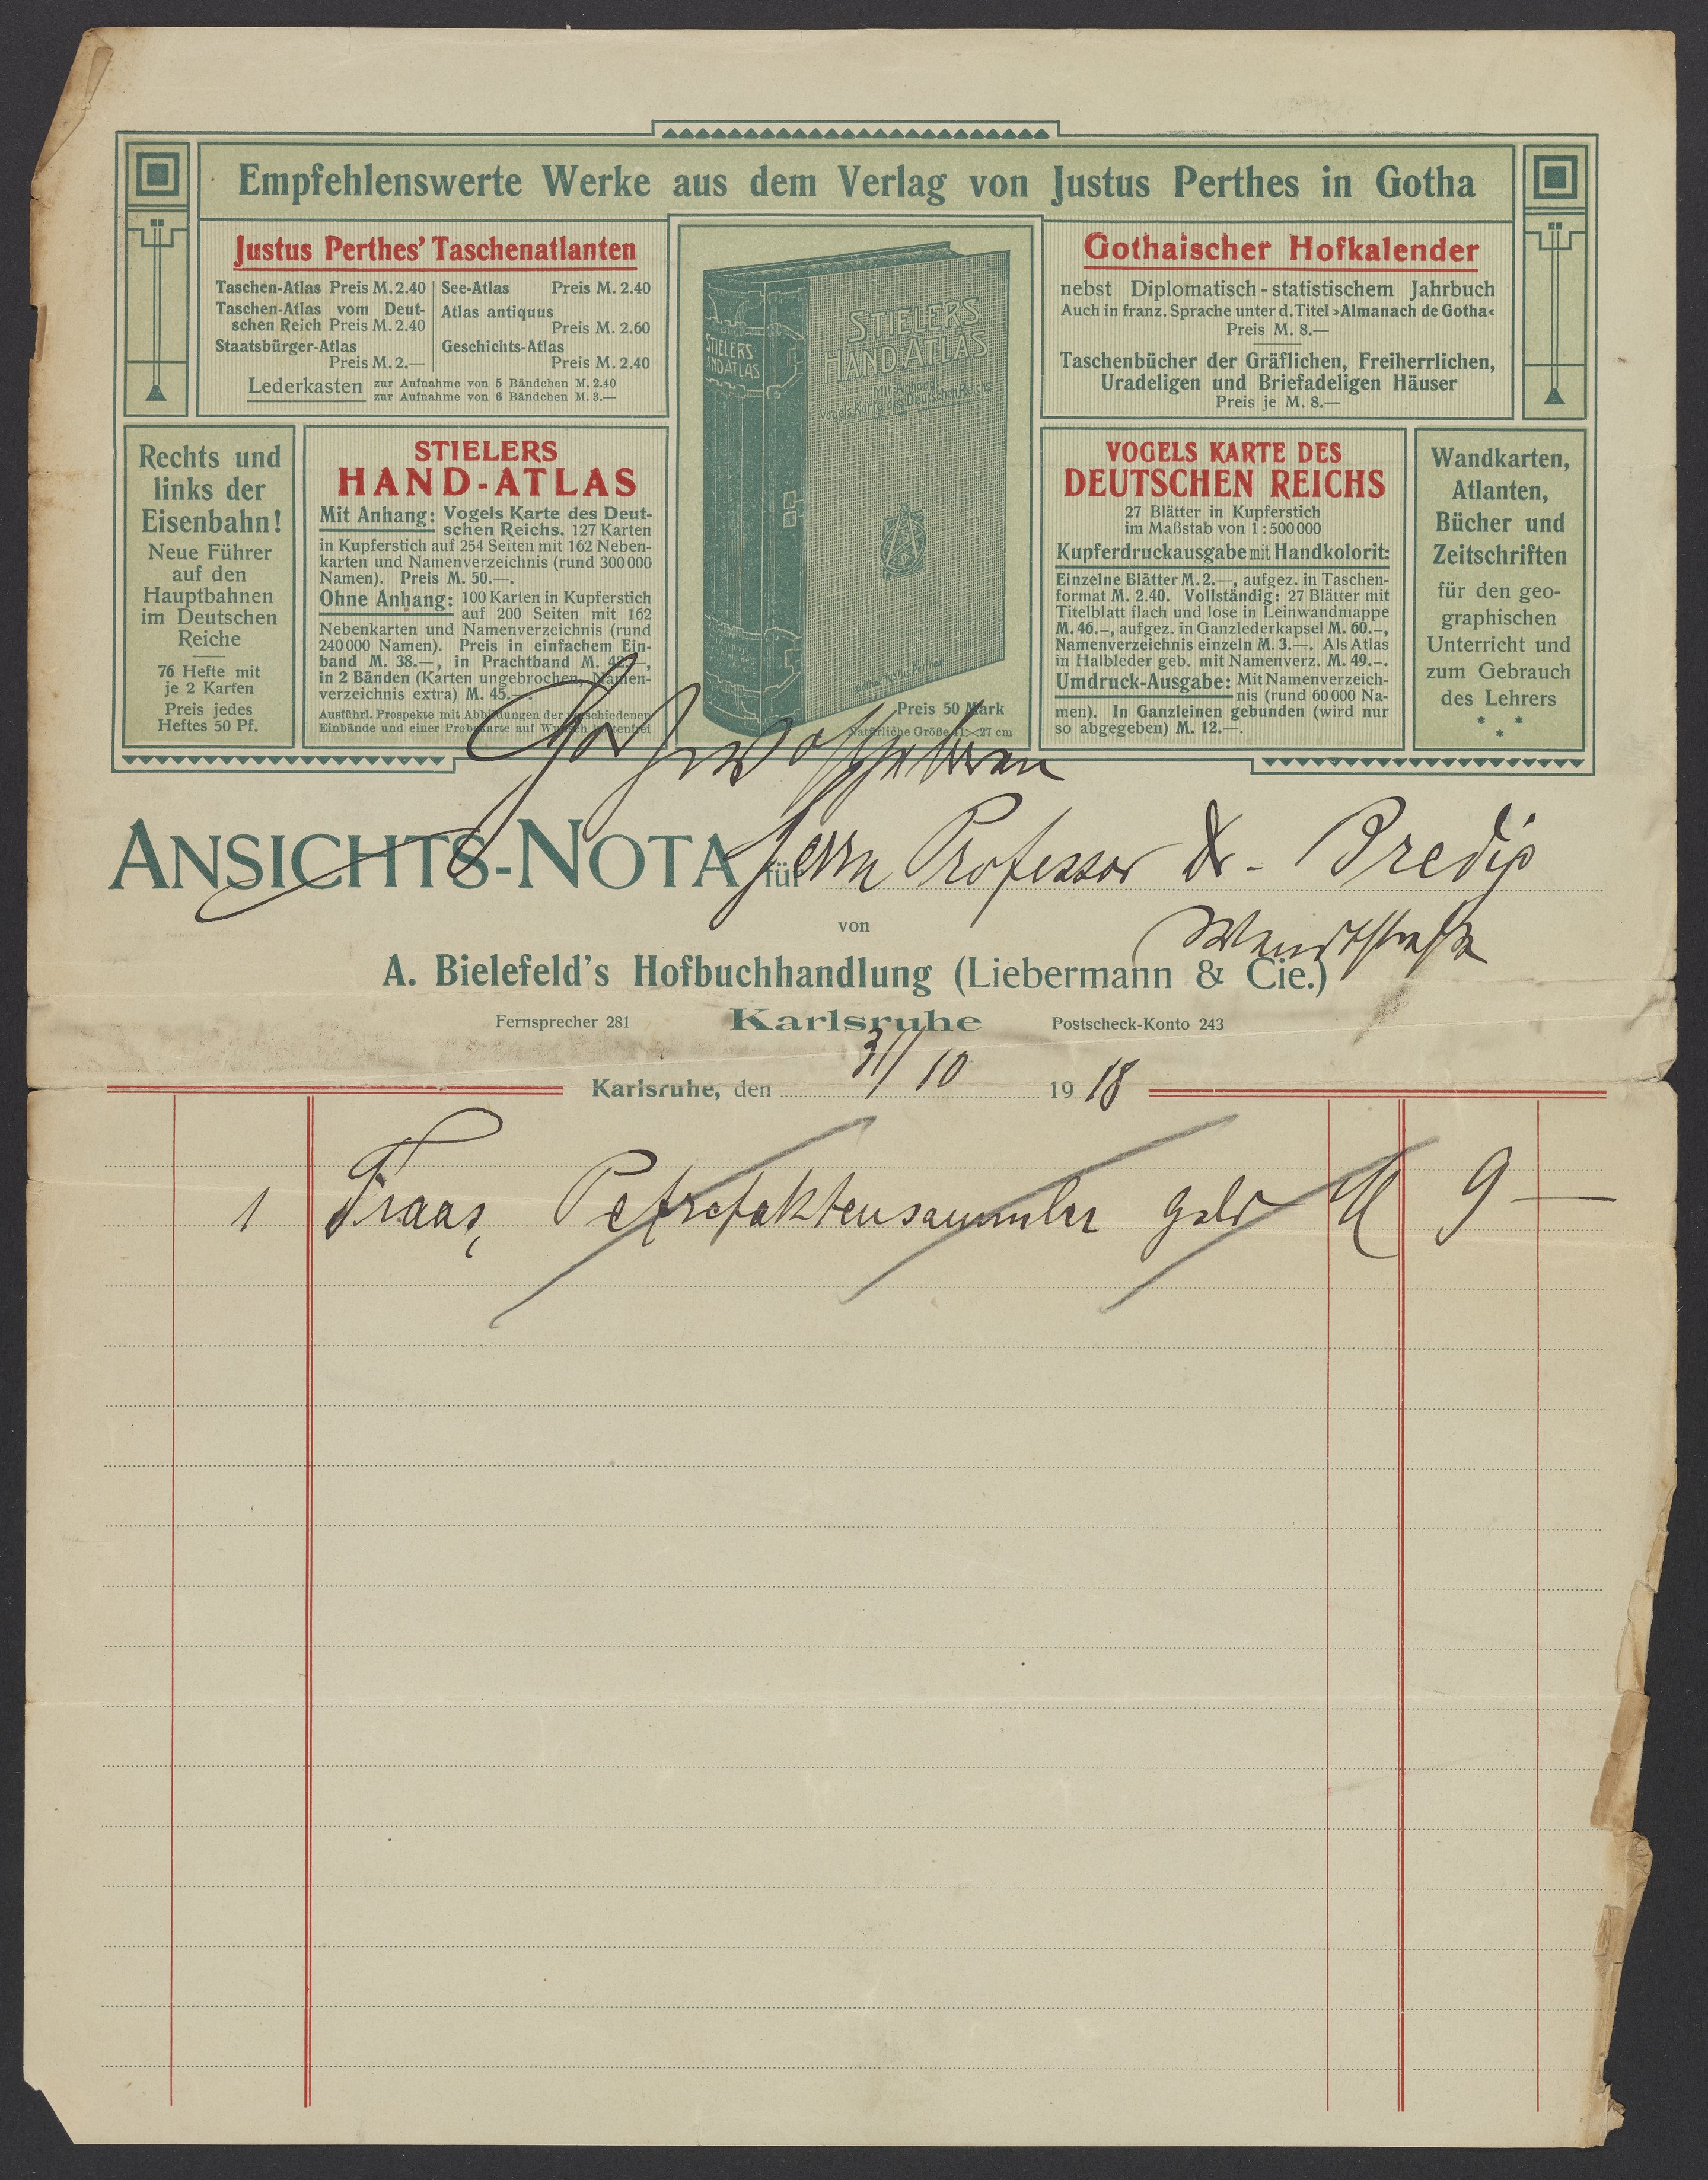 Empfehlenswerte Werke aus dem Verlag von Justus Perthes in Gotha
Justus Perthes' Taschenatlanten
Taschen-Atlas Preis M. 2.40
Taschen-Atlas vom Deut-
schen Reich Preis M. 2.40
Staatsbürger-Atlas
Preis M. 2.—
See-Atlas Preis M. 2.40
Atlas antiquus
Preis M. 2.60
Geschichts-Atlas
Preis M. 2.40
Lederkasten zur Aufnahme von 5 Bändchen M. 2.40
zur Aufnahme von 6 Bändchen M. 3.—
STIELERS
HAND-ATLAS
STIELERS
HAND-ATLAS
Mit Anhang:
Vogels Karte des Deutschen Reichs
Preis 50 Mark
Natürliche Größe 41×27 cm
Gothaischer Hofkalender
nebst Diplomatisch-statistischem Jahrbuch
Auch in franz. Sprache unter d. Titel »Almanach de Gotha«
Preis M. 8.—
Taschenbücher der Gräflichen, Freiherrlichen,
Uradeligen und Briefadeligen Häuser
Preis je M. 8.—
Rechts und
links der
Eisenbahn!
Neue Führer
auf den
Hauptbahnen
im Deutschen
Reiche
76 Hefte mit
je 2 Karten
Preis jedes
Heftes 50 Pf.
STIELERS
HAND-ATLAS
Mit Anhang: Vogels Karte des Deut-
schen Reichs. 127 Karten
in Kupferstich auf 254 Seiten mit 162 Neben-
karten und Namenverzeichnis (rund 300 000
Namen). Preis M. 50.—.
Ohne Anhang: 100 Karten in Kupferstich
auf 200 Seiten mit 162
Nebenkarten und Namenverzeichnis (rund
240 000 Namen). Preis in einfachem Ein-
band M. 38.—, in Prachtband M. 42.—,
in 2 Bänden (Karten ungebrochen, Namen-
verzeichnis extra) M. 45.—.
Ausführl. Prospekte mit Abbildungen der verschiedenen
Einbände und einer Probekarte auf Wunsch kostenfrei
VOGELS KARTE DES
DEUTSCHEN REICHS
27 Blätter in Kupferstich
im Maßstab von 1 : 500 000
Kupferdruckausgabe mit Handkolorit:
Einzelne Blätter M. 2.—, aufgez. in Taschen-
format M. 2.40. Vollständig: 27 Blätter mit
Titelblatt flach und lose in Leinwandmappe
M. 46.–, aufgez. in Ganzlederkapsel M. 60.–,
Namenverzeichnis einzeln M. 3.—. Als Atlas
in Halbleder geb. mit Namenverz. M. 49.–.
Umdruck-Ausgabe: Mit Namenverzeich-
nis (rund 60 000 Na-
men). In Ganzleinen gebunden (wird nur
so abgegeben) M. 12.—.
Wandkarten,
Atlanten,
Bücher und
Zeitschriften
für den geo-
graphischen
Unterricht und
zum Gebrauch
des Lehrers
* *
*
Hochwohlgeboren
ANSICHTS-NOTA für Herrn Professor Dr.
von
Wendtstraße
A. Bielefeld's Hofbuchhandlung (Liebermann & Cie.)
Fernsprecher 281 Karlsruhe Postscheck-Konto 243
Karlsruhe, den 31/10 1918
1 Fraas, Petrefaktensammler gebd M 9 —